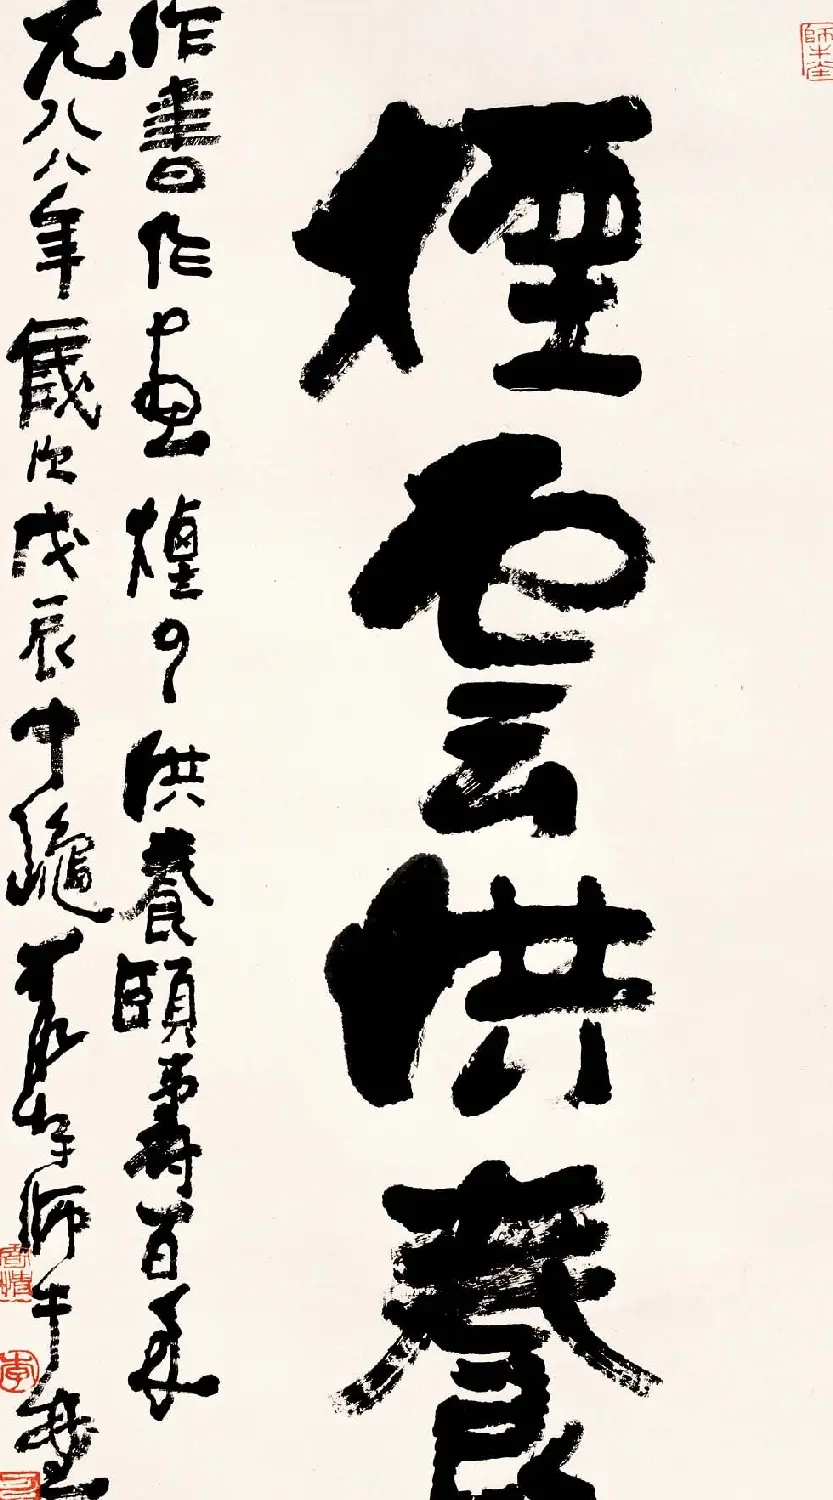 師牛堂
煙雲供養
作書作畫煙雲供養頤壽百年
一九八八年歲次戊辰中龝可染於師牛堂
李